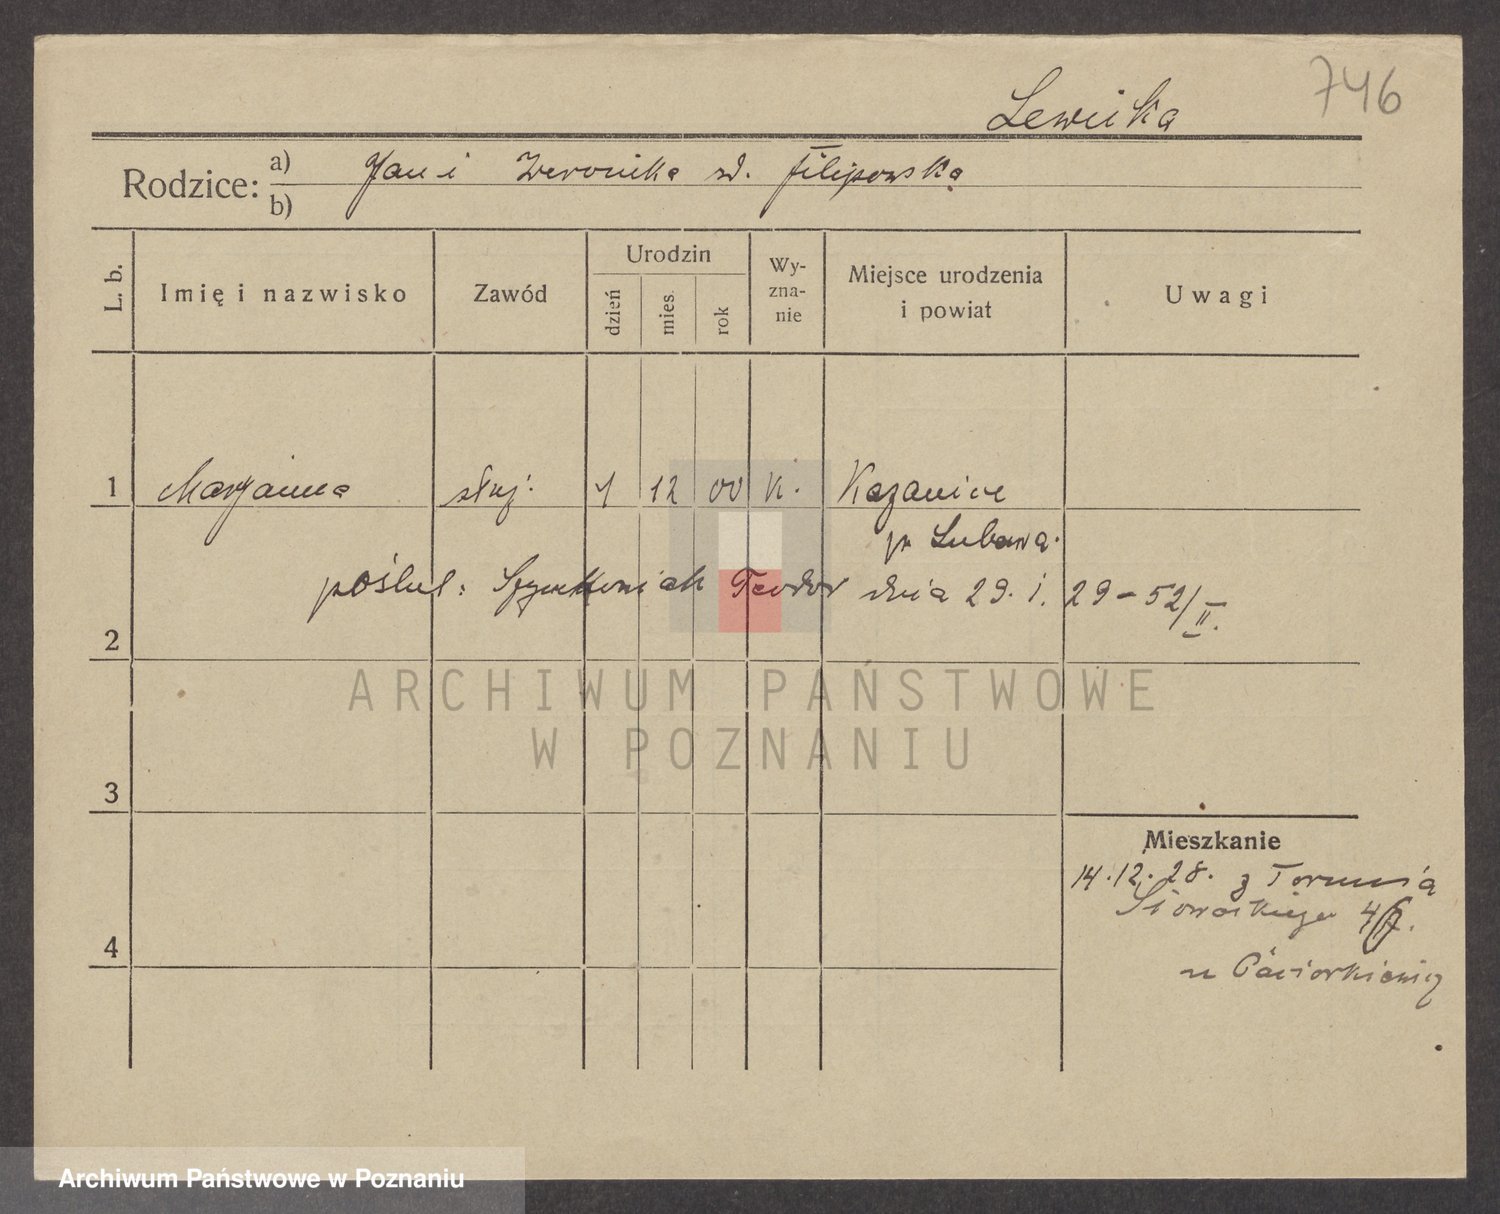 746
Lewicka
Rodzice: a) Jan i Weronika zd. Filipowska
b)
L. b. Imię i nazwisko Zawód Urodzin dzień mies. rok Wyznanie Miejsce urodzenia i powiat Uwagi
1 Marjanna służ. 1 12 00 K. Kazanice
p. Lubawa.
poślub: Teodor dnia 29. I. 29 – 52/II.
2
3
4
Mieszkanie
14.12.28. z Torunia
Słowackiego
u
ARCHIWUM PAŃSTWOWE
W POZNANIU
Archiwum Państwowe w Poznaniu